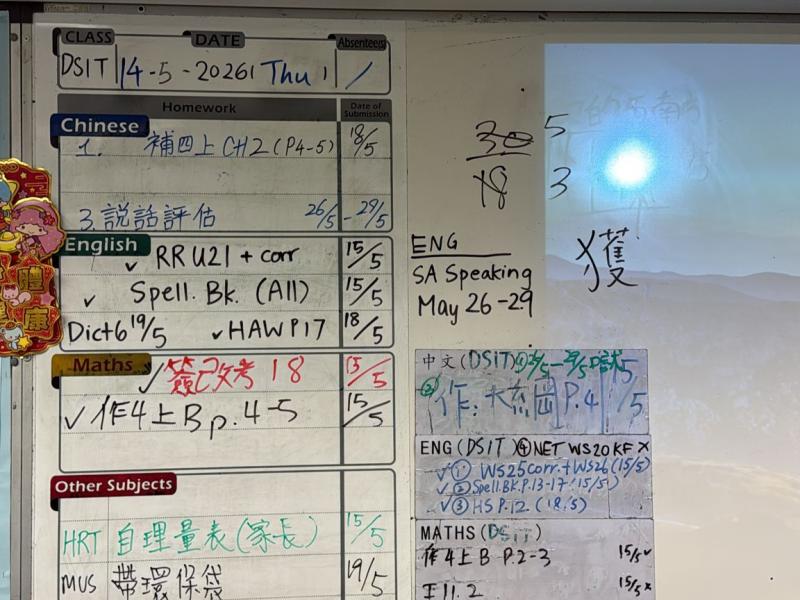 CLASS DATE Absentees
DSIT 14-5-2026 Thu /
Homework Date of Submission
Chinese
1. 補四上CH2(P4-5) 18/5
3.說話評估 26/5-29/5
English
✓ RR U21 + corr 15/5
✓ Spell. Bk. (All) 15/5
Dict6 19/5 ✓HAW P17 18/5
Maths
✓簽已改考 18 15/5
✓作4上B p.4-5 15/5
Other Subjects
HRT 自理量表(家長) 15/5
MUS 帶環保袋 19/5
30 5
18 3
獲
ENG
SA Speaking
May 26-29
中文(DSIT)
② 作: 大綱 P.4 15/5
ENG(DSIT)④NET WS20 KF ×
✓① WS25corr.+WS26(15/5)
✓② Spell.BK.P.13-17(15/5)
✓③ HS P.12 (18.5)
MATHS(DSIT)
作4上B P.2-3 15/5✓
工11.2 15/5×
體
康